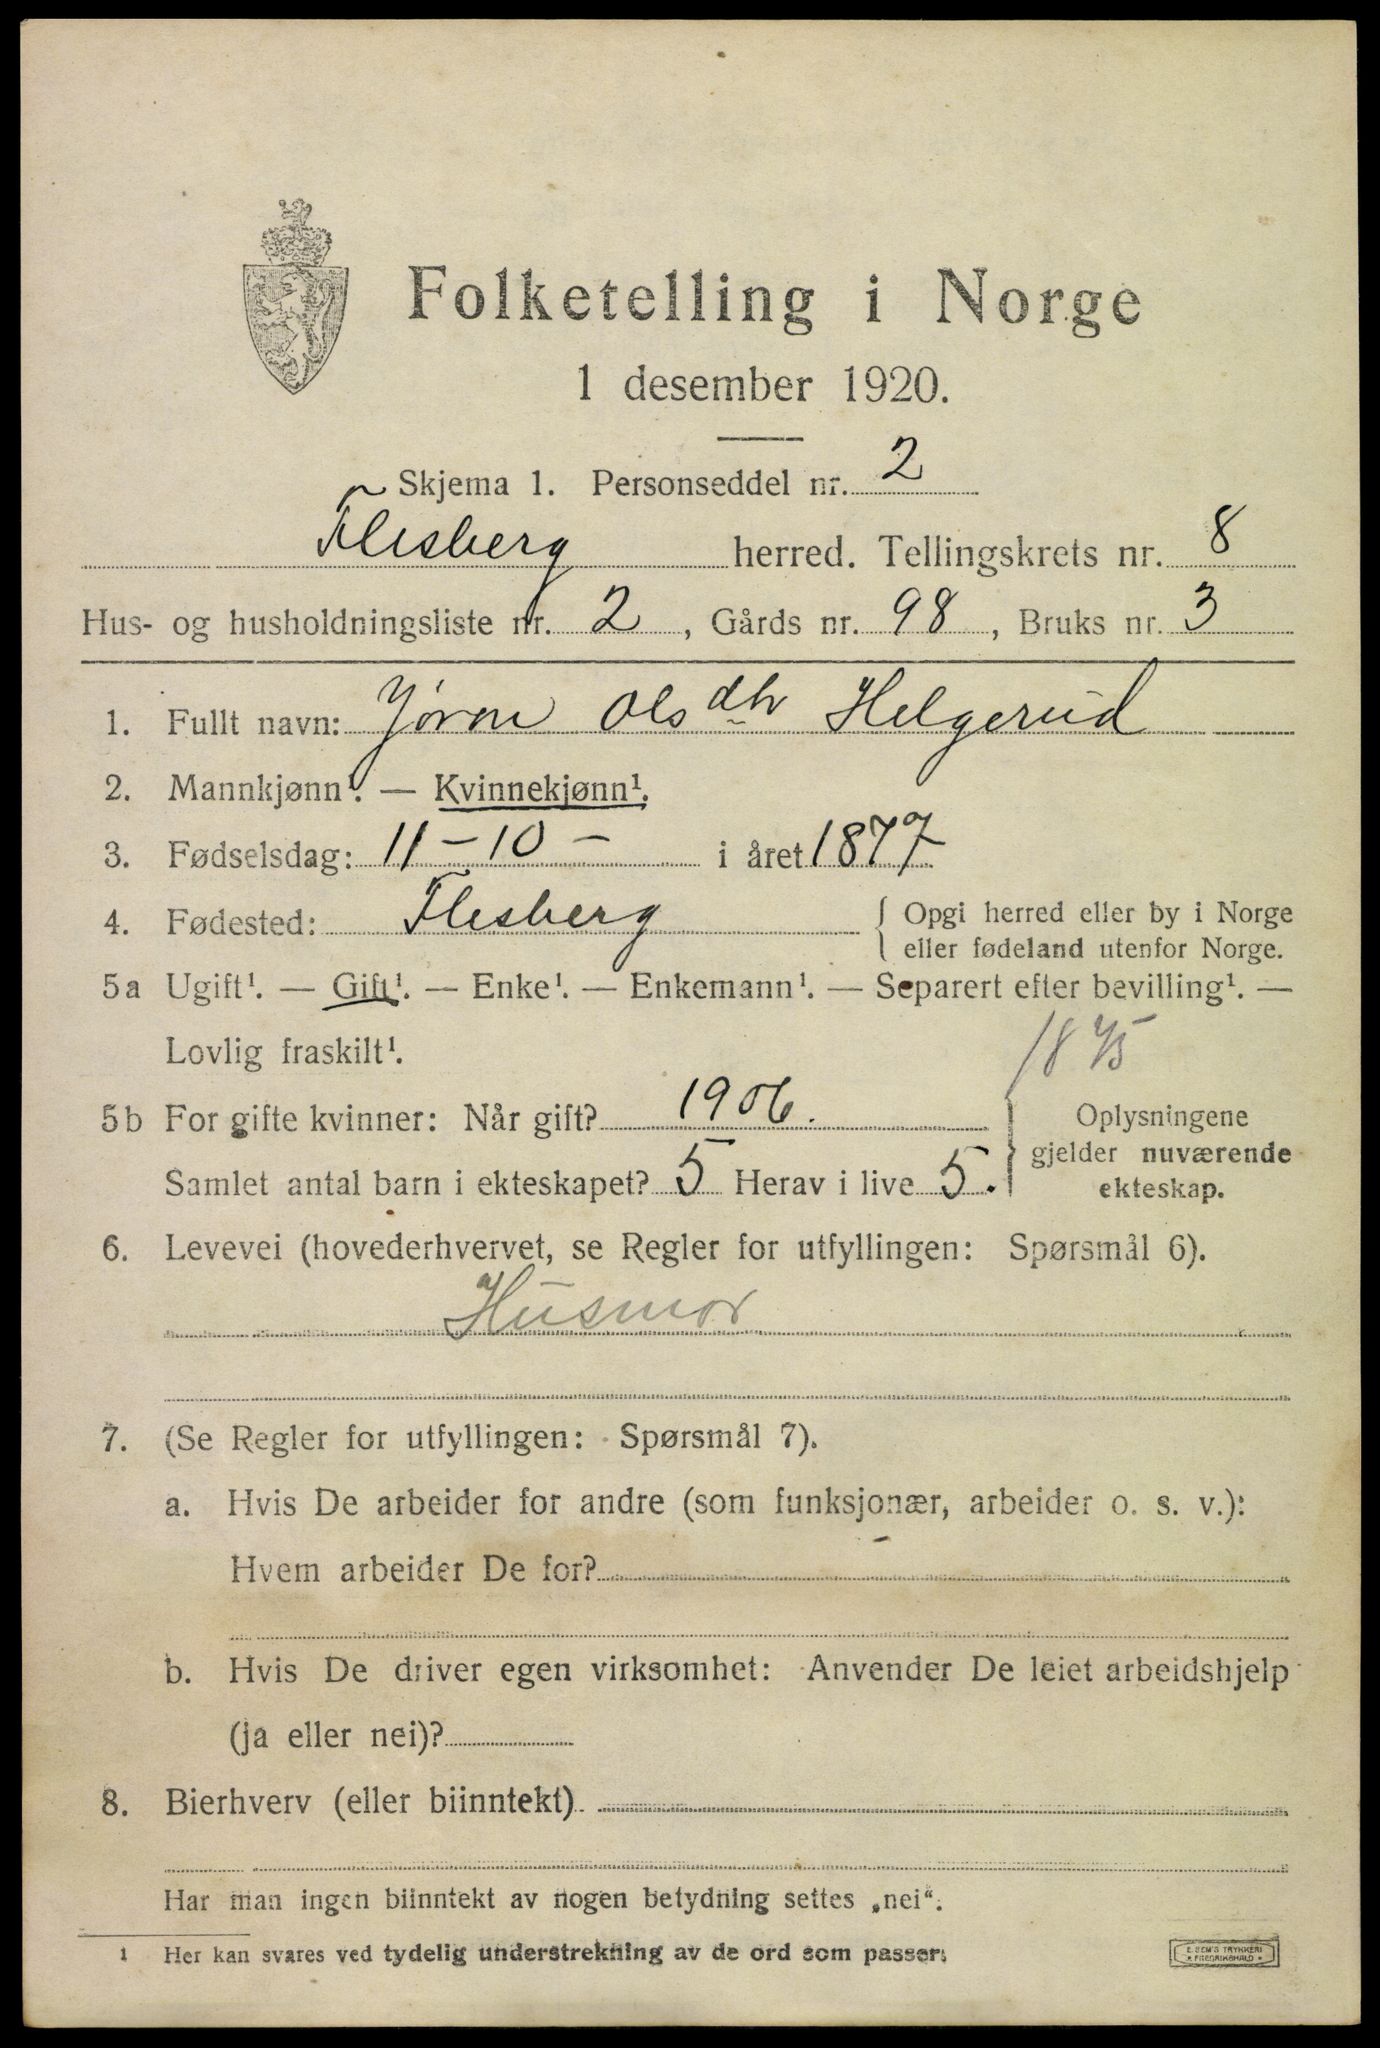 Folketelling i Norge
1 desember 1920.
Skjema 1. Personseddel nr. 2
Flesberg herred. Tellingskrets nr. 8
Hus- og husholdningsliste nr. 2, Gårds nr. 98, Bruks nr. 3
1. Fullt navn: Jøron Olsdtr Helgerud
2. Mannkjønn¹. — Kvinnekjønn¹.
3. Fødselsdag: 11 - 10 - i året 1877
4. Fødested: Flesberg { Opgi herred eller by i Norge
eller fødeland utenfor Norge.
5a Ugift¹. — Gift¹. — Enke¹. — Enkemann¹. — Separert efter bevilling¹. —
Lovlig fraskilt¹.
1875
5b For gifte kvinner: Når gift? 1906.
Samlet antal barn i ekteskapet? 5 Herav i live 5.
} Oplysningene
gjelder nuværende
ekteskap.
6. Levevei (hovederhvervet, se Regler for utfyllingen: Spørsmål 6).
Husmor
7. (Se Regler for utfyllingen: Spørsmål 7).
a. Hvis De arbeider for andre (som funksjonær, arbeider o. s. v.):
Hvem arbeider De for?
b. Hvis De driver egen virksomhet: Anvender De leiet arbeidshjelp
(ja eller nei)?
8. Bierhverv (eller biinntekt)
Har man ingen biinntekt av nogen betydning settes „nei“.
1 Her kan svares ved tydelig understrekning av de ord som passer.
E. SEM'S TRYKKERI
* FREDRIKSHALD *